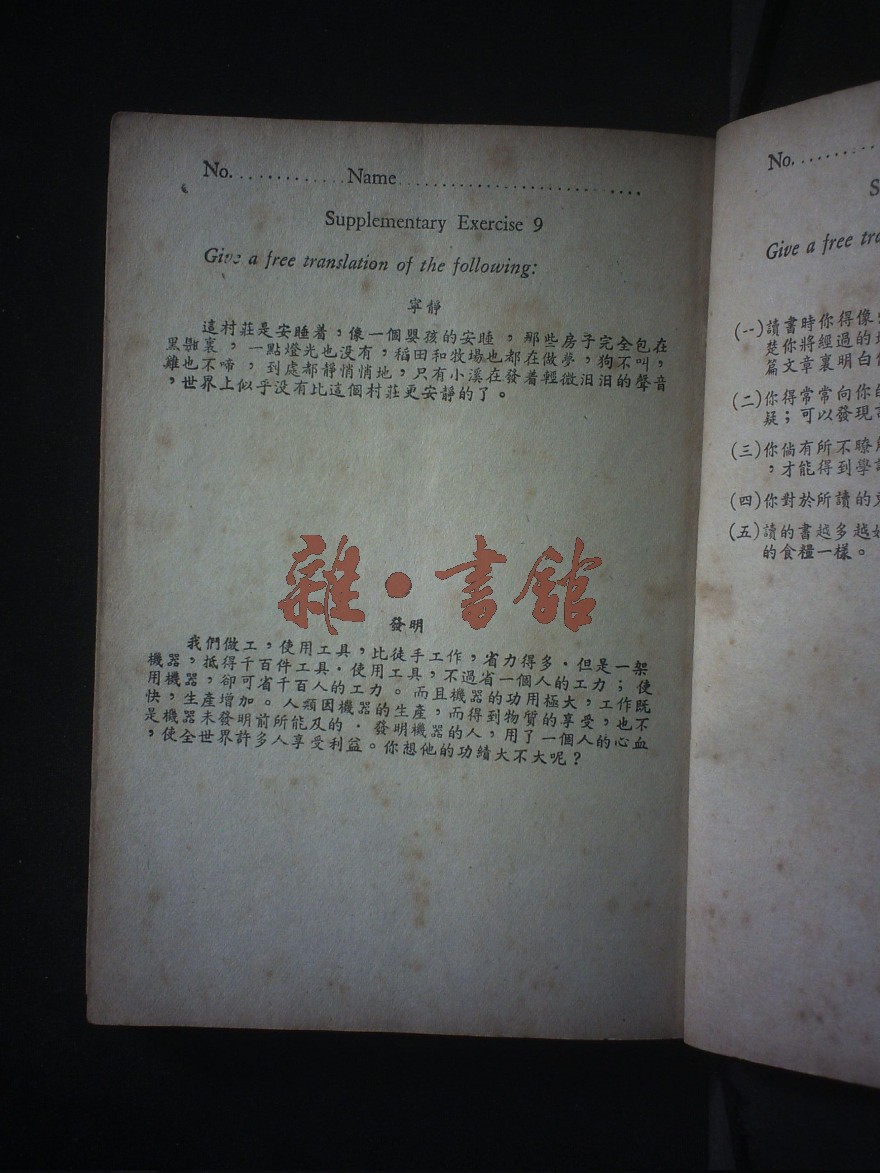 No. . . . . . . . . . . . . Name. . . . . . . . . . . . . . . . . . . . . . . . . . . .
Supplementary Exercise 9
Give a free translation of the following:
寧靜
這村莊是安睡着，像一個嬰孩的安睡，那些房子完全包在
黑裏，一點燈光也没有，稻田和牧場也都在做夢，狗不叫，
雞也不啼，到處都靜悄悄地，只有小溪在發着輕微汨汨的聲音
，世界上似乎没有比這個村莊更安靜的了。
雜·書館
發明
我們做工，使用工具，比徒手工作，省力得多．但是一架
機器，抵得千百件工具．使用工具，不過省一個人的工力；使
用機器，卻可省千百人的工力。而且機器的功用極大，工作既
快，生產增加。人類因機器的生產，而得到物質的享受，也不
是機器未發明前所能及的．發明機器的人，用了一個人的心血
，使全世界許多人享受利益。你想他的功績大不大呢？
No. . . . . . . . .
Give a free
(一)讀書時你得像
楚你將經過的
篇文章裏明白
(二)你得常常向你的
疑；可以發現
(三)你倘有所不瞭
，才能得到學
(四)你對於所讀的
(五)讀的書越多越
的食糧一樣。